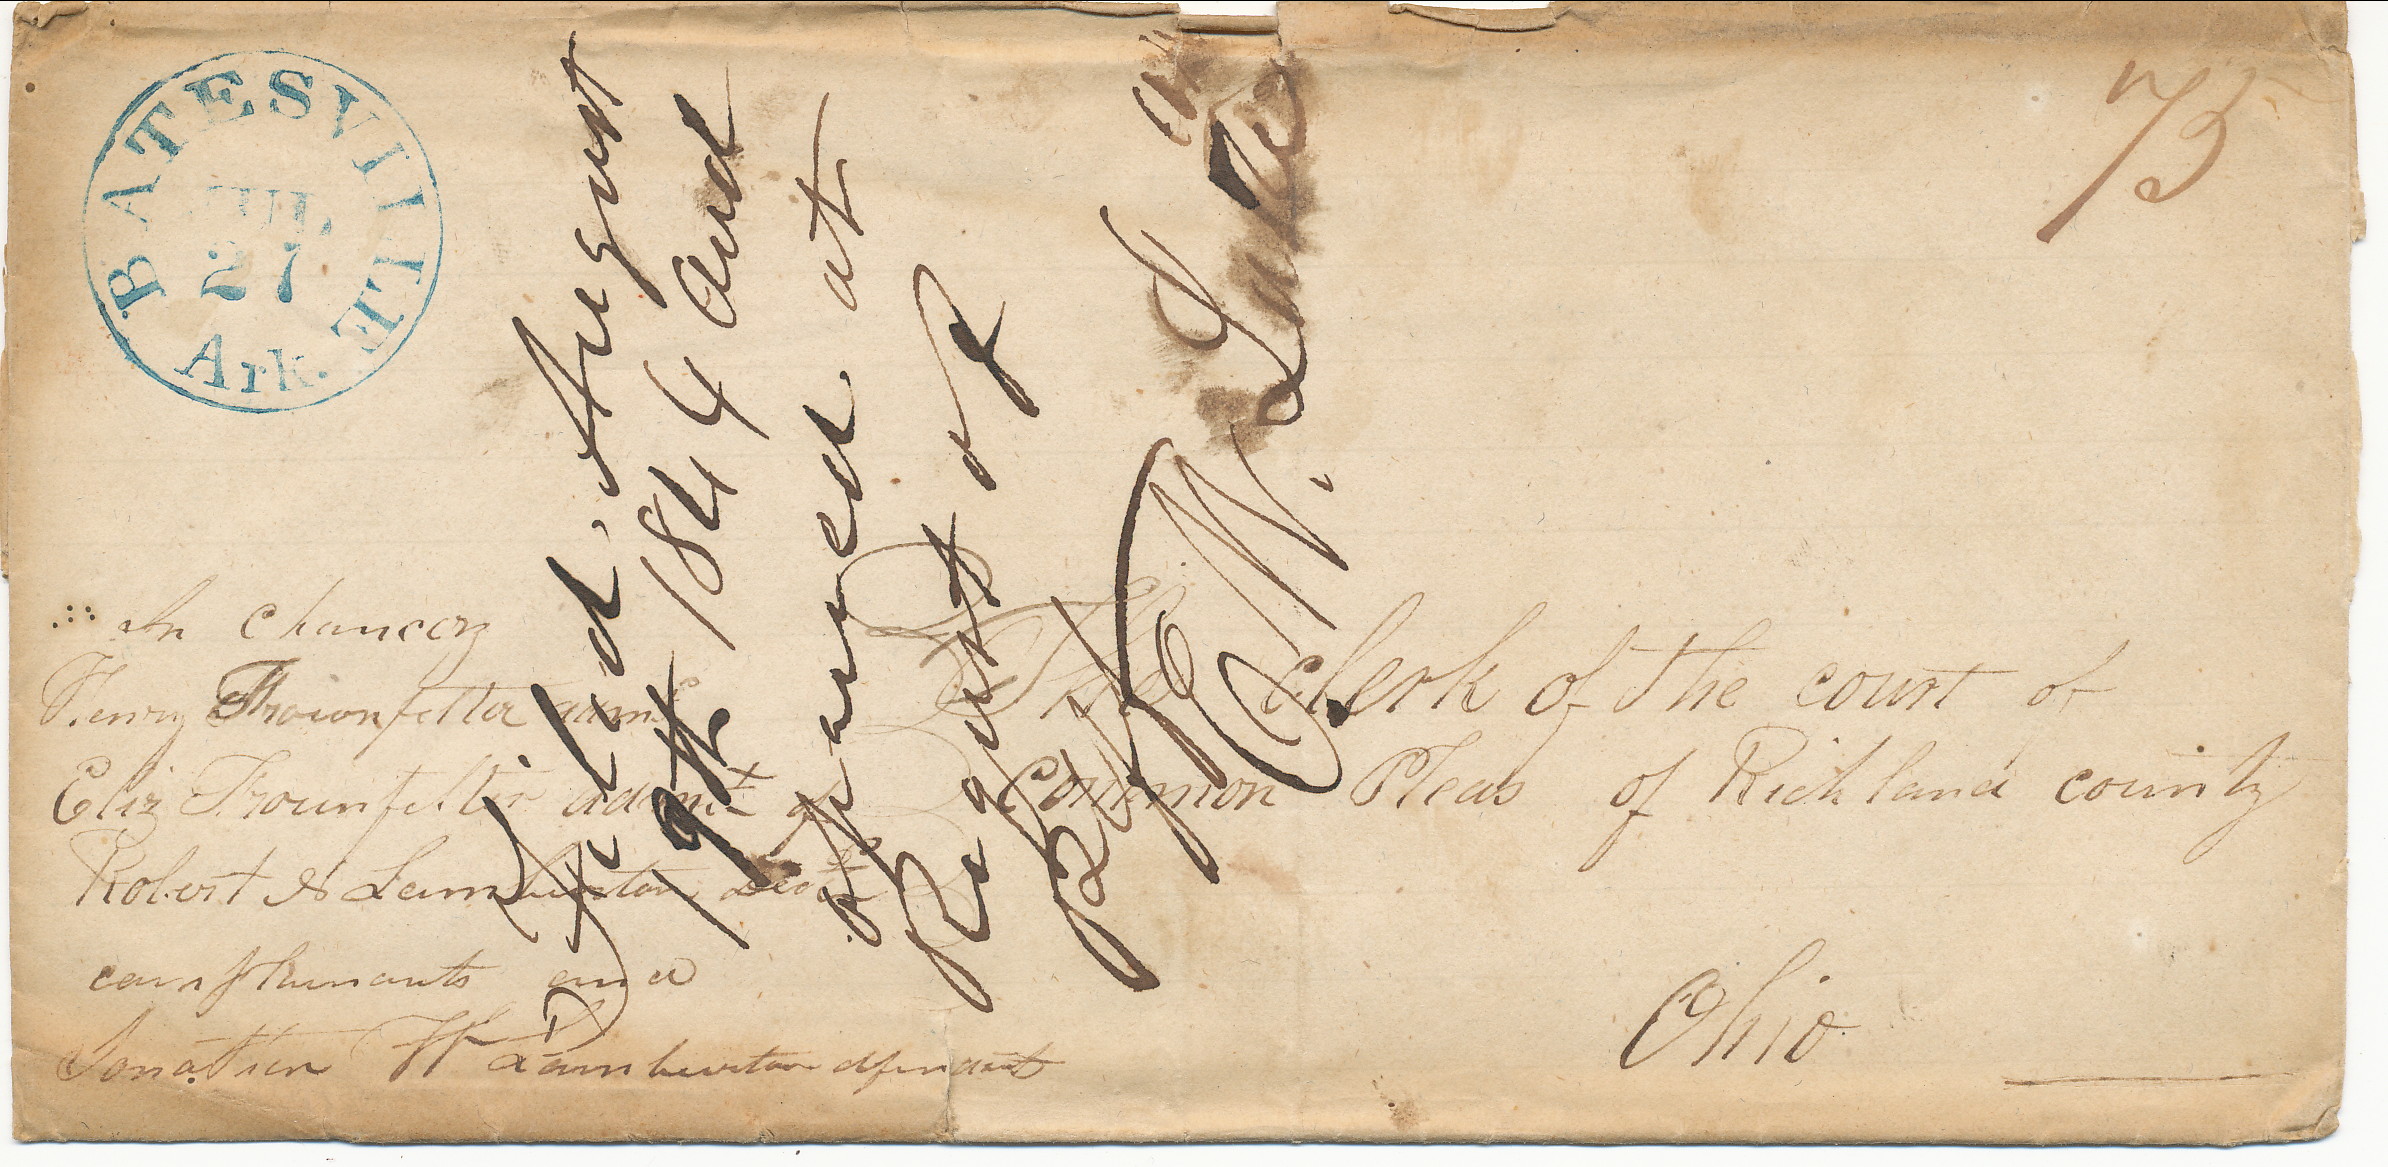 BATESVILLE
JUL.
27
Ark.
75
Filed. August
9th 1844 and
opened. at
Request of
W. Lake
Clk
In chancery
Henry Trounfelter adm
Eliz Trounfelter admx of
Robert N Lamberton, Decd
complainants and
Jonathan W Lamberton defendant
The clerk of the court of
Common Pleas of Richland county
Ohio